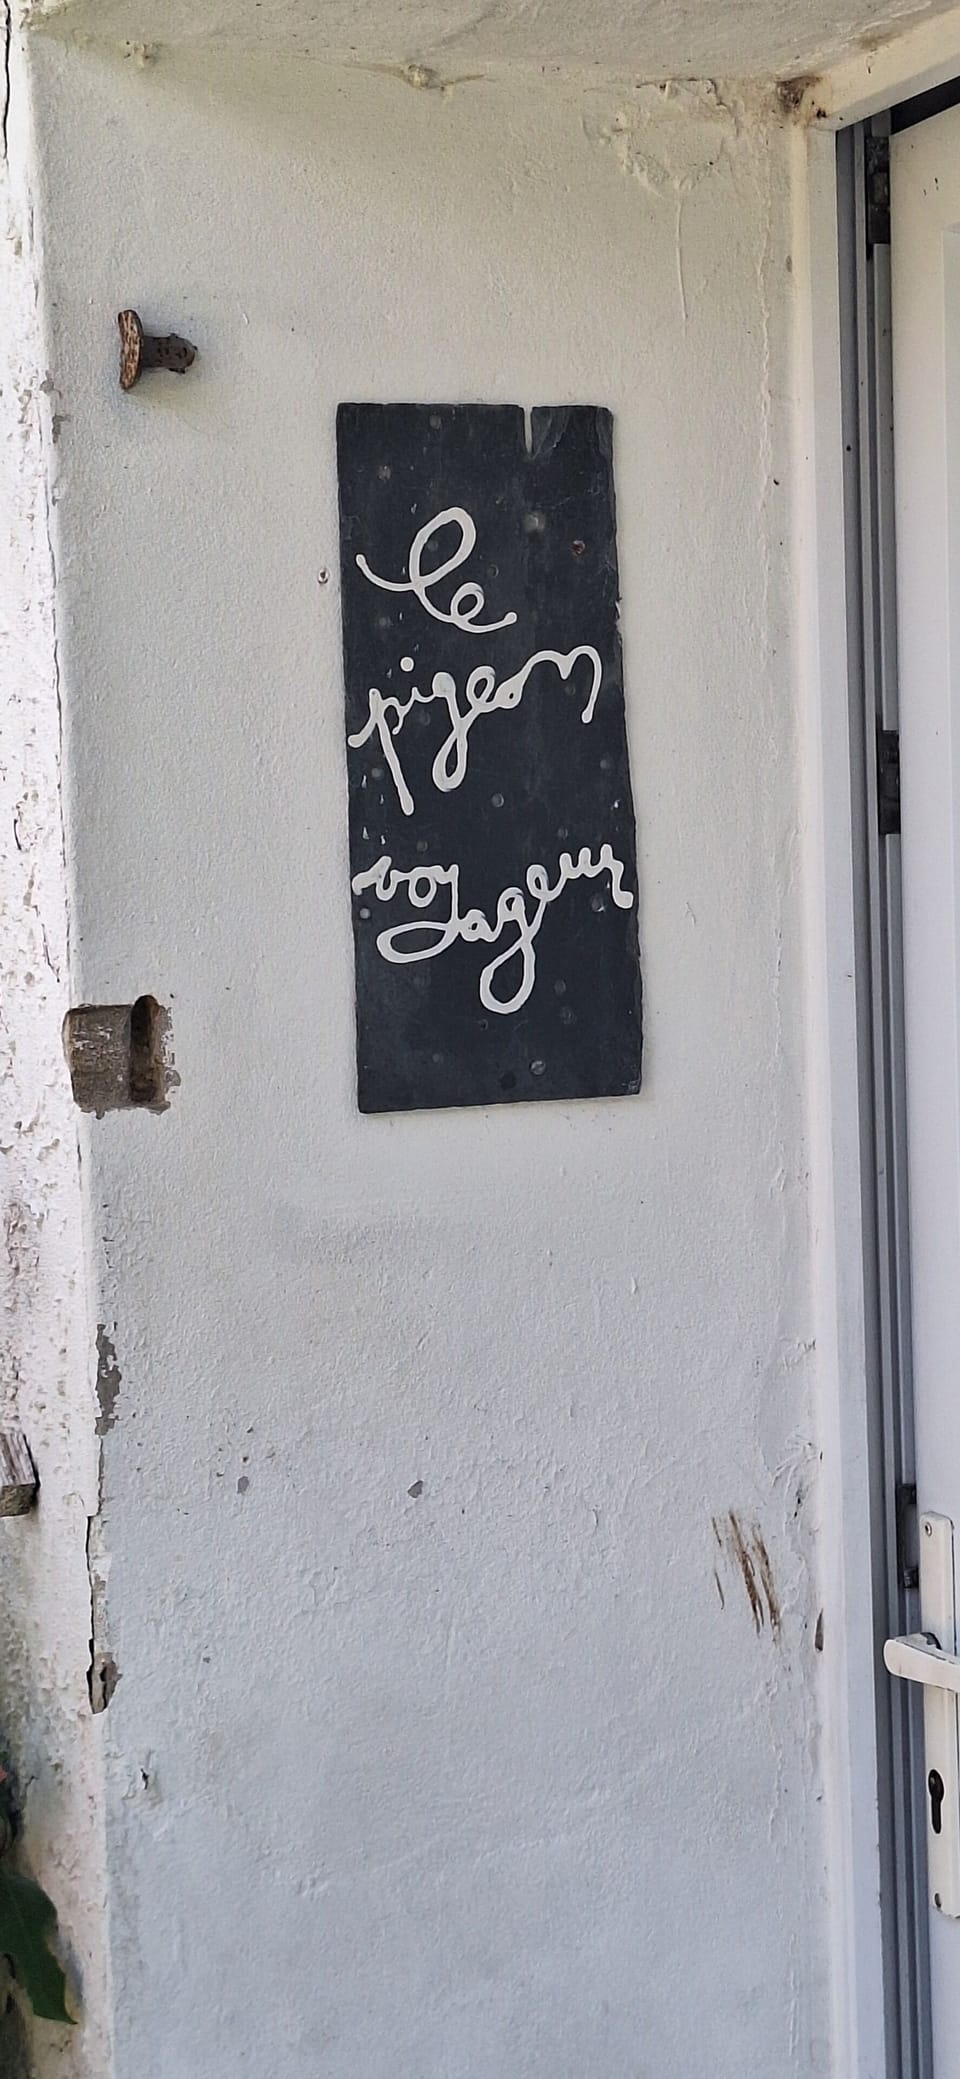 le
pigeon
voyageur